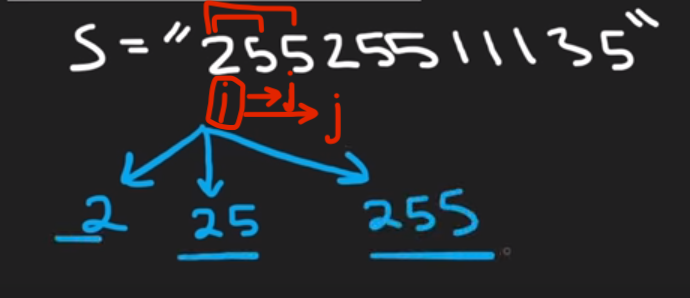 S="25525511135"
i j
j
2 25 255